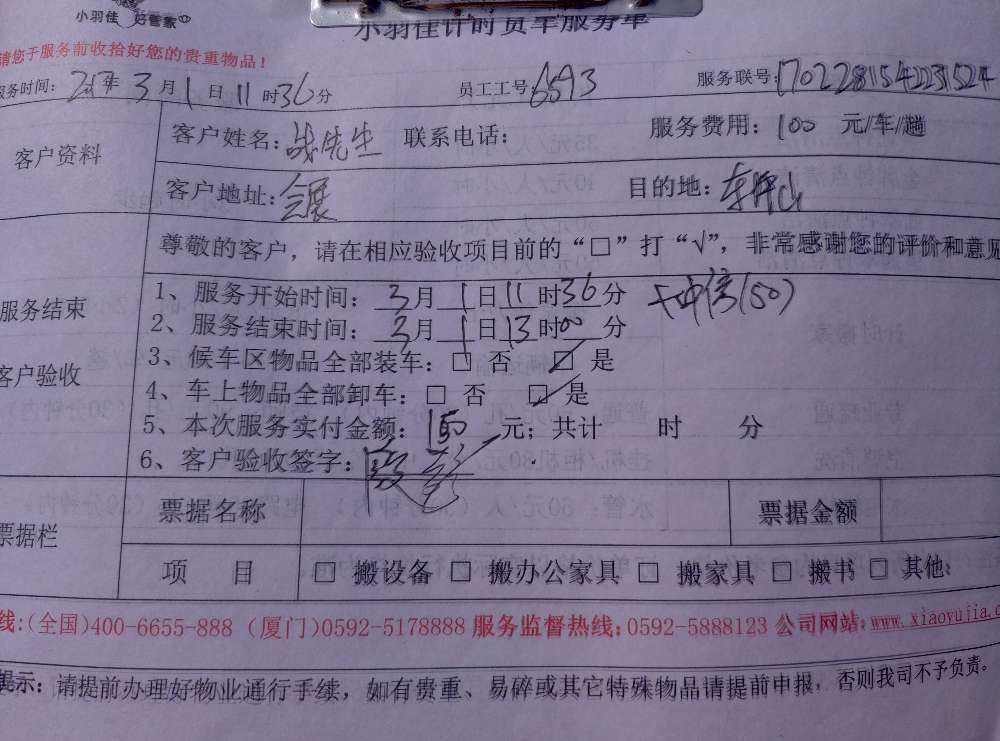 小羽佳 好管家
小羽佳计时货车服务单
请您于服务前收拾好您的贵重物品！
服务时间: 2017年 3月 1日 11时36分 员工工号: 6593 服务联号: 1702281542231524
客户资料
客户姓名: 战先生 联系电话: 服务费用: 100 元/车/趟
客户地址: 会展 目的地:
尊敬的客户，请在相应验收项目前的“□”打“√”，非常感谢您的评价和意见
服务结束
客户验收
1、服务开始时间: 3月 1日 11时36分 (50)
2、服务结束时间: 3月 1日 13时00分
3、候车区物品全部装车: □ 否 ☑ 是
4、车上物品全部卸车: □ 否 ☑ 是
5、本次服务实付金额: 150 元; 共计 时 分
6、客户验收签字:
票据栏
票据名称 票据金额
项 目 □ 搬设备 □ 搬办公家具 □ 搬家具 □ 搬书 □ 其他:
线:(全国)400-6655-888 (厦门)0592-5178888 服务监督热线: 0592-5888123 公司网站: www.xiaoyujia.c
提示: 请提前办理好物业通行手续，如有贵重、易碎或其它特殊物品请提前申报，否则我司不予负责。